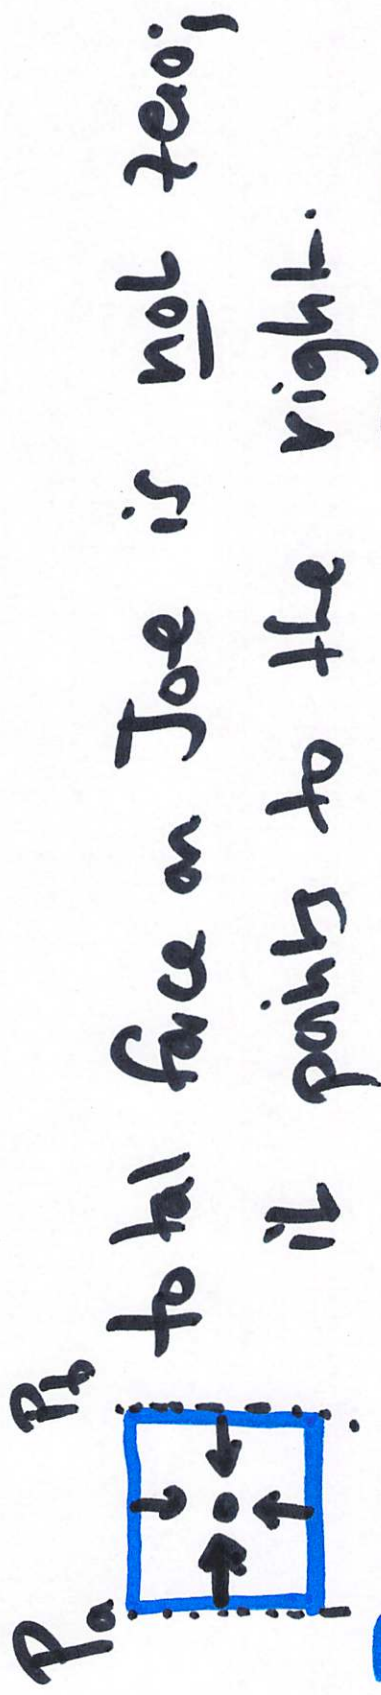 Pa Pb
total force on Joe is not zero;
it points to the right.